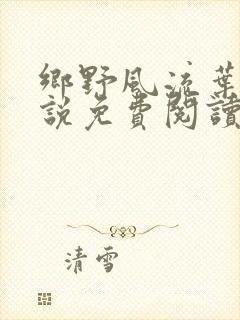 鄉野風流葉
說免費閱讀
清雪